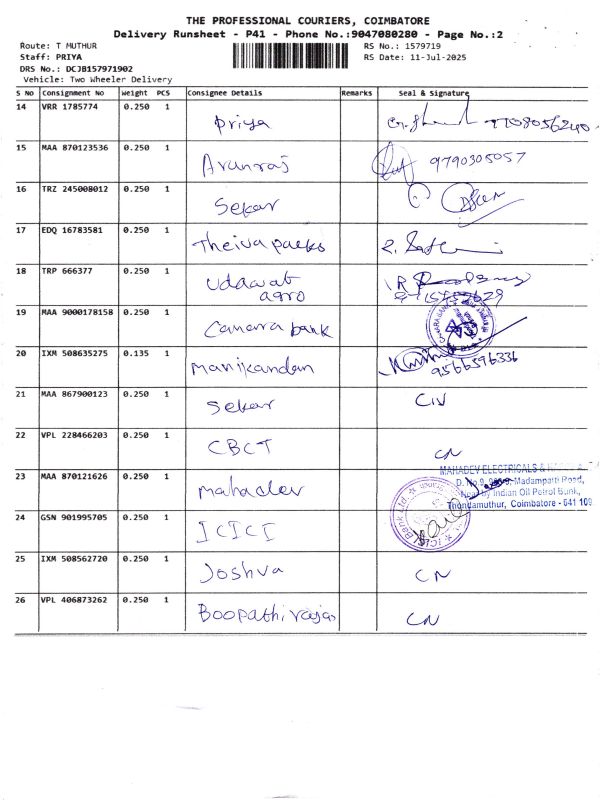 THE PROFESSIONAL COURIERS, COIMBATORE
Delivery Runsheet - P41 - Phone No.:9047080280 - Page No.:2
Route: T MUTHUR RS No.: 1579719
Staff: PRIYA RS Date: 11-Jul-2025
DRS No.: DCJB157971902
Vehicle: Two Wheeler Delivery
S NO Consignment No Weight PCS Consignee Details Remarks Seal & Signature
14 VRR 1785774 0.250 1 Priya 9708056240
15 MAA 870123536 0.250 1 Arunraj 9790305057
16 TRZ 245008012 0.250 1 Sekar
17 EDQ 16783581 0.250 1 Theiva packs
18 TRP 666377 0.250 1 Udaavat
agro
19 MAA 9000178158 0.250 1 Canara bank
CANARA BANK
20 IXM 508635275 0.135 1 Manikandan 9566596336
21 MAA 867900123 0.250 1 Sekar CN
22 VPL 228466203 0.250 1 CBCT CN
MAHADEV ELECTRICALS &
23 MAA 870121626 0.250 1 mahadev Madampatti Road,
by Indian Oil Petrol Bunk,
Thondamuthur, Coimbatore - 641 109
24 GSN 901995705 0.250 1 ICICI
ICICI Bank Ltd.
25 IXM 508562720 0.250 1 Joshva CN
26 VPL 406873262 0.250 1 Boopathirajas CN